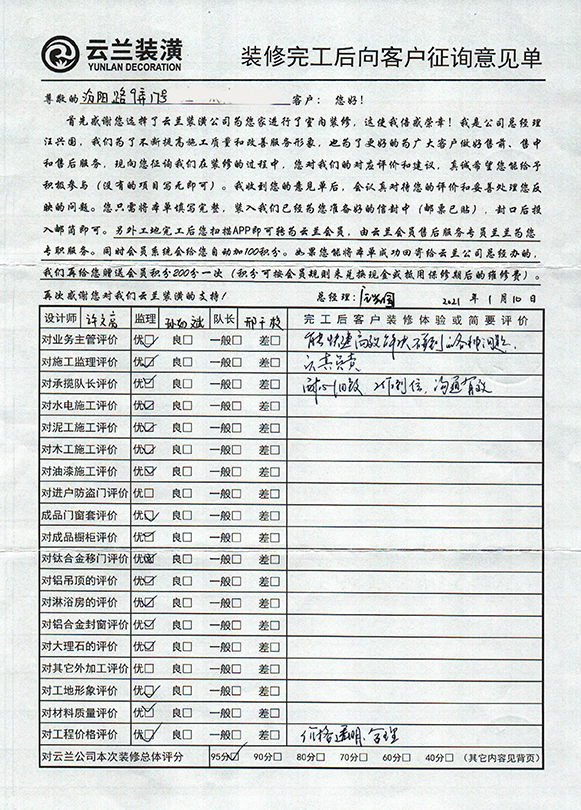 云兰装潢
YUNLAN DECORATION
装修完工后向客户征询意见单
尊敬的 路9弄17号 客户：您好！
首先感谢您选择了云兰装潢公司为您家进行了室内装修，这使我倍感荣幸！我是公司总经理
汪兴国，我们为了不断提高施工质量和改善服务形象，也为了更好的为广大客户做好售前、售中
和售后服务，现向您征询我们在装修的过程中，您对我们的对应评价和建议，真诚希望您能给予
积极参与（没有的项目写无即可）。我收到您的意见单后，会认真对待您的评价和妥善处理您反
映的问题。您只需将本单填写完整，装入我们已经为您准备好的信封中（邮票已贴），封口后投
入邮筒即可。另外工地完工后您扫描APP即可转为云兰会员，由云兰会员售后服务专员兰兰为您
专职服务。同时会员系统会给您自动加100积分。如果您能将本单成功回寄给云兰公司总经办的，
我们再给您赠送会员积分200分一次（积分可按会员规则来兑换现金或抵用保修期后的维修费）。
再次感谢您对我们云兰装潢的支持！ 总经理： 2021 年 1 月 10 日
设计师 监理 队长 完工后客户装修体验或简要评价
对业务主管评价 优☑ 良□ 一般□ 差□ 能快速高效解决不到的各种问题．
对施工监理评价 优☑ 良□ 一般□ 差□ 认真负责
对承揽队长评价 优☑ 良□ 一般□ 差□ 耐心细致 工作到位，沟通有效
对水电施工评价 优☑ 良□ 一般□ 差□
对泥工施工评价 优☑ 良□ 一般□ 差□
对木工施工评价 优☑ 良□ 一般□ 差□
对油漆施工评价 优☑ 良□ 一般□ 差□
对进户防盗门评价 优□ 良□ 一般□ 差□
成品门窗套评价 优☑ 良□ 一般□ 差□
对成品橱柜评价 优☑ 良□ 一般□ 差□
对钛合金移门评价 优☑ 良□ 一般□ 差□
对铝吊顶的评价 优☑ 良□ 一般□ 差□
对淋浴房的评价 优☑ 良□ 一般□ 差□
对铝合金封窗评价 优☑ 良□ 一般□ 差□
对大理石的评价 优☑ 良□ 一般□ 差□
对其它外加工评价 优□ 良□ 一般□ 差□
对工地形象评价 优☑ 良□ 一般□ 差□
对材料质量评价 优☑ 良□ 一般□ 差□
对工程价格评价 优☑ 良□ 一般□ 差□ 价格透明、合理
对云兰公司本次装修总体评分 95分☑ 90分□ 80分□ 70分□ 60分□ 40分□ （其它内容见背页）